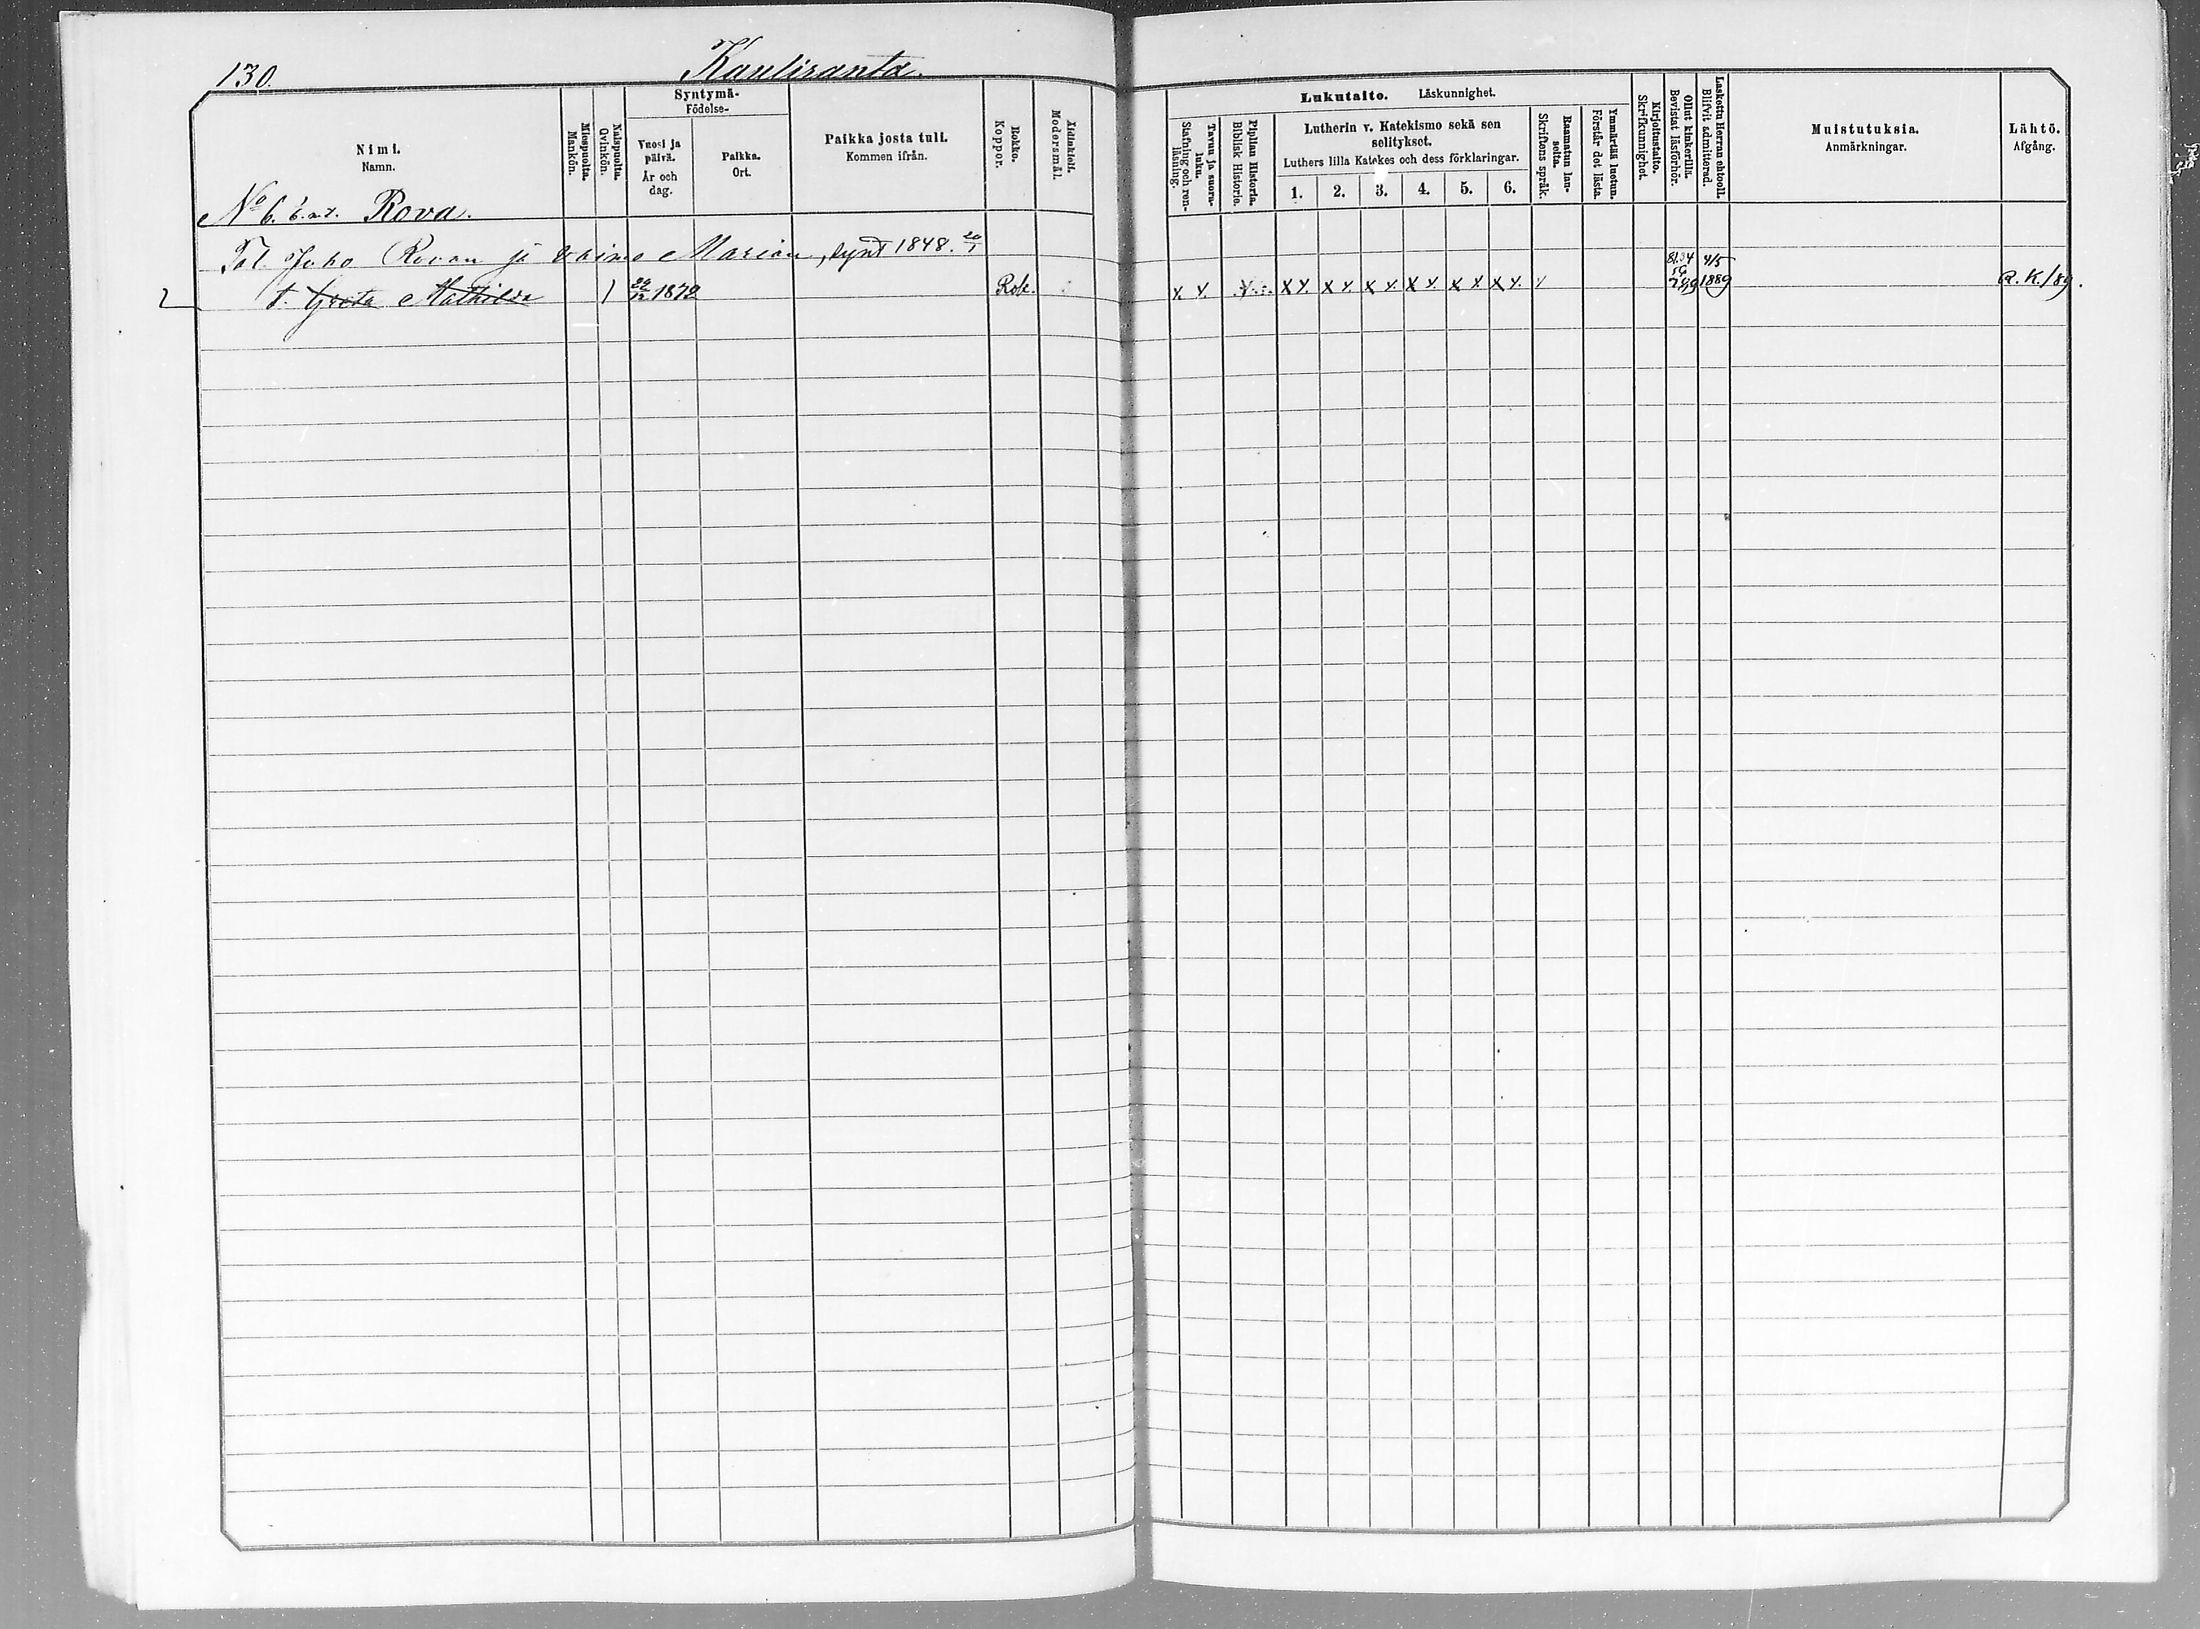 130.
Kauliranta.
Nimi.
Namn.
Miespuolta.
Mankön.
Naispuolta.
Qvinkön.
Syntymä-
Födelse-
Vuosi ja
päivä.
År och
dag.
Paikka.
Ort.
Paikka josta tuli.
Kommen ifrån.
Rokko.
Koppor.
Äidinkieli.
Modersmål.
Lukutaito. Läskunnighet.
Tavuu ja suora-
luku.
Stafning och ren-
läsning.
Piplian Historia.
Biblisk Historie.
Lutherin v. Katekismo sekä sen
selitykset.
Luthers lilla Katekes och dess förklaringar.
1. 2. 3. 4. 5. 6.
Raamatun lau-
seita.
Skriftens språk.
Ymmärtää luetun.
Förstår det lästa.
Kirjoitustaito.
Skrifkunnighet.
Ollut kinkerillä.
Bevistat läsförhör.
Laskettu Herran ehtooll.
Blifvit admitterad.
Muistutuksia.
Anmärkningar.
Lähtö.
Afgång.
No 6. Rova.
Tal. Juho Rovan ja vaimo Marian, synt 1848. 20/1
2 t. Greta Mathilda 1 22/12 1872 Rok. x x x x x x x x x x x x x x x 1889 R.K./89.